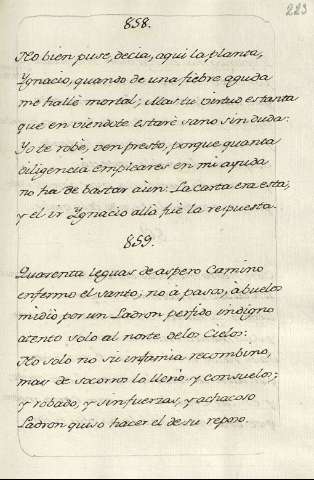 223
858.
No bien puse, decia, aqui la planta,
Ygnacio, quando de una fiebre aguda
me hallè mortal; Mas tu virtud es tanta
que en viendote estarè sano sin duda:
Yo te robè, ven presto, porque quanta
diligencia empleares en mi ayuda
no ha de bastar aùn: La carta era esta,
y el ir Ygnacio allà fuè la respuesta.
859.
Quarenta leguas de aspero Camino
enfermo el santo, no à pasos, à buelos
midiò por un Ladron perfido indigno
atento solo al norte delos Cielos:
No solo no su infamia
mas de socorros lo llenò, y consuelos;
y robado, y sin fuerzas, y achacoso
Ladron quiso hacer el de su reposo.